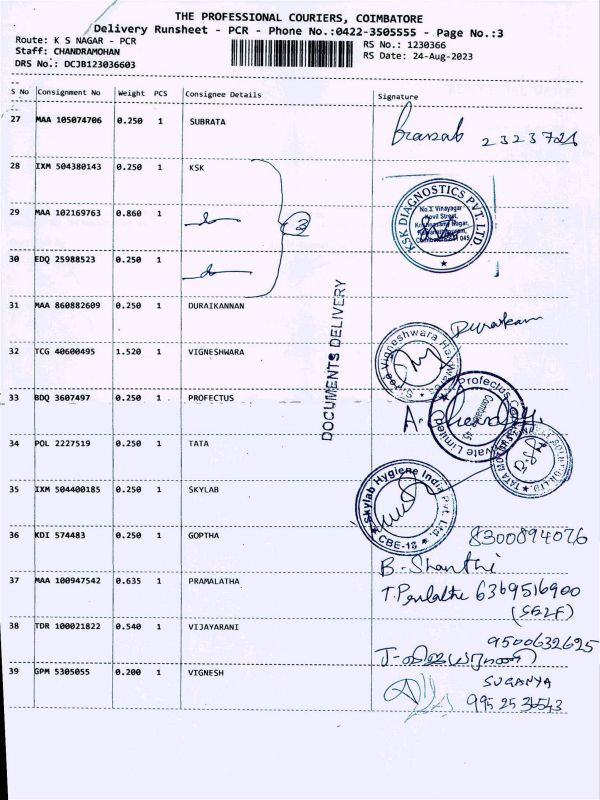 THE PROFESSIONAL COURIERS, COIMBATORE
Delivery Runsheet - PCR - Phone No.:0422-3505555 - Page No.:3
Route: K S NAGAR - PCR
RS No.: 1230366
Staff: CHANDRAMOHAN
RS Date: 24-Aug-2023
DRS No.: DCJB123036603
S No Consignment No Weight PCS Consignee Details Signature
27 MAA 105074706 0.250 1 SUBRATA
28 IXM 504380143 0.250 1 KSK
29 MAA 102169763 0.860 1
3
KSK DIAGNOSTICS PVT. LTD.
No.3, Vinayagar
Kovil Street,
30 EDQ 25988523 0.250 1
31 MAA 860882609 0.250 1 DURAIKANNAN
DOCUMENTS DELIVERY
32 TCG 40600495 1.520 1 VIGNESHWARA
33 BDQ 3607497 0.250 1 PROFECTUS
34 POL 2227519 0.250 1 TATA
35 IXM 504400185 0.250 1 SKYLAB
Skylab Hygiene India Pvt. Ltd.
CBE-18
36 KDI 574483 0.250 1 GOPTHA
8300894076
B. Shanthi
37 MAA 100947542 0.635 1 PRAMALATHA
6369516900
(SELF)
38 TDR 100021822 0.540 1 VIJAYARANI
9500632625
39 GPM 5305055 0.200 1 VIGNESH
SUGANYA
9952536543